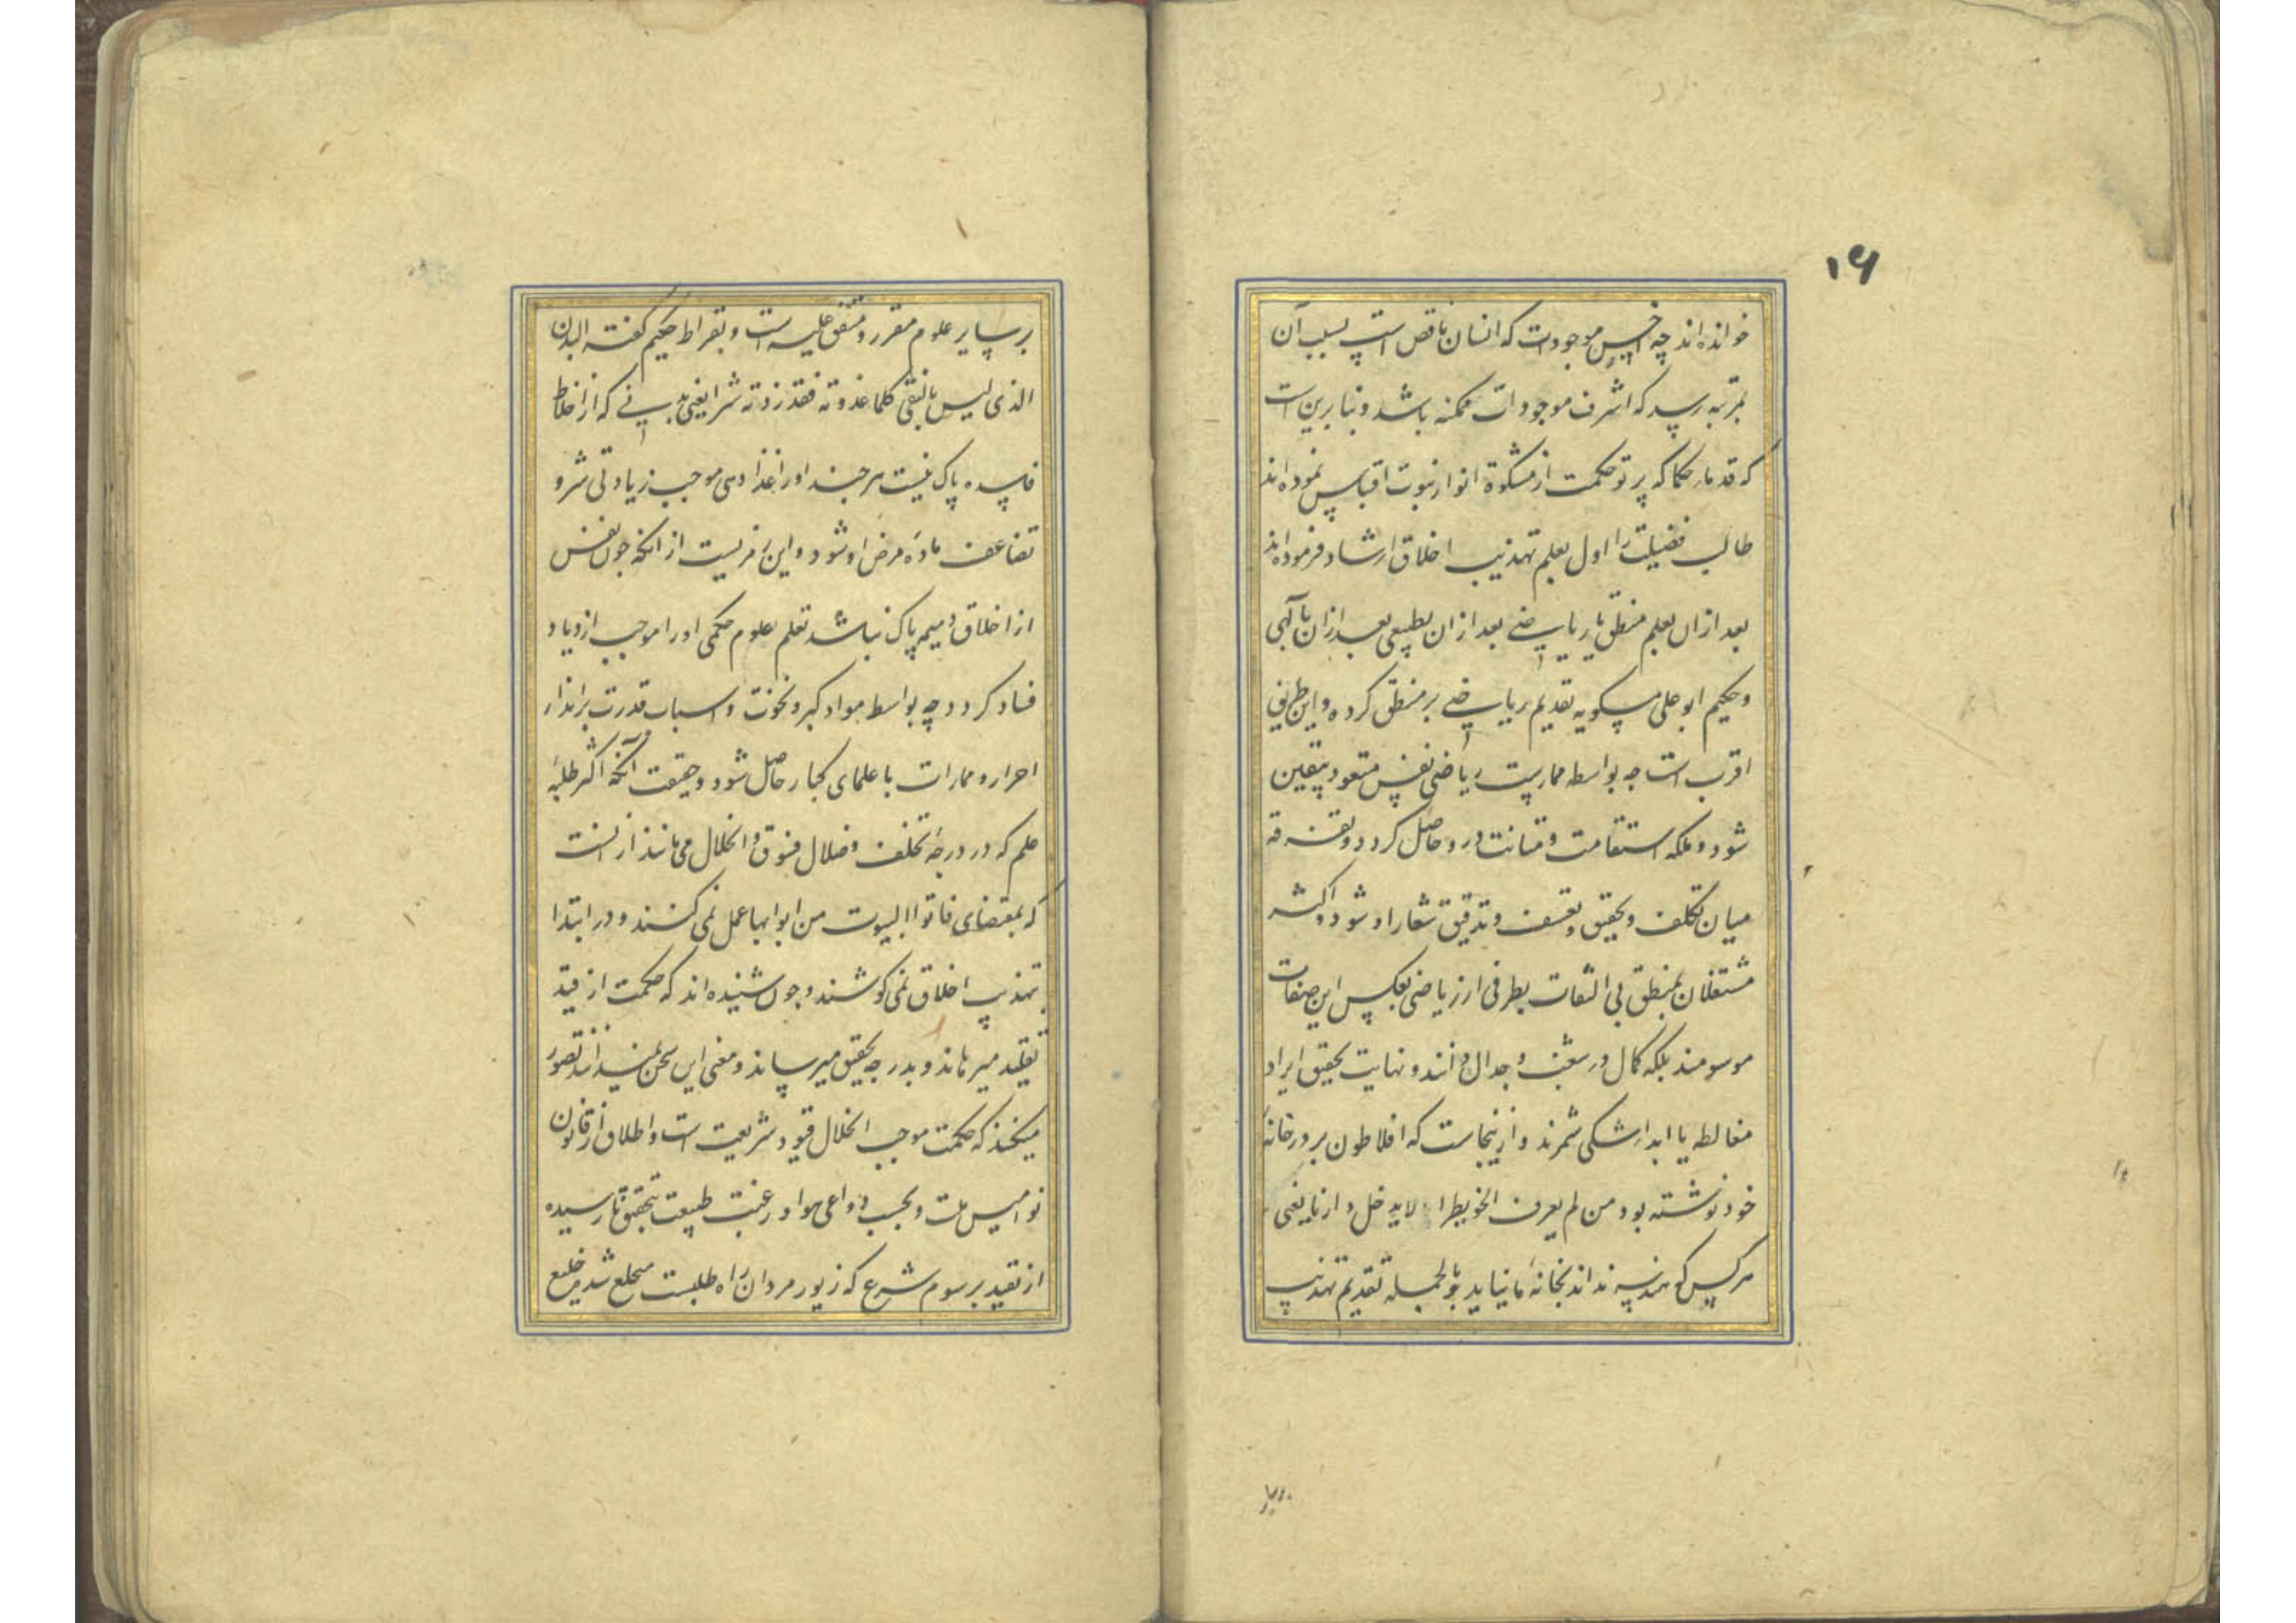 ۱۶
خوانده‌اند چه اخس موجودات که انسان ناقص است بسبب آن
بمرتبه رسد که اشرف موجودات ممکنه باشد و بنابرین است
که قدماء حکما که پرتو حکمت از مشکوة انوار نبوت اقتباس نموده‌اند
طالب فضیلت را اول بعلم تهذیب اخلاق ارشاد فرموده‌اند
بعد ازان بعلم منطق یا ریاضی بعد ازان بطبیعی بعد ازان بآلهی
و حکیم ابو علی مسکویه تقدیم ریاضی بر منطق کرده و این طریق
اقرب است چه بواسطه ممارست ریاضی نفس متعود بیقین
شود و ملکه استقامت و متانت درو حاصل کردد و تفرقه
میان تکلف و تحقیق و تعسف و تدقیق شعار او شود و اکثر
مشتغلان بمنطق بی التفات بطرفی از ریاضی بعکس این صفات
موسومند بلکه کمال در شغب و جدال دانند و نهایت تحقیق ایراد
مغالطه یا ابداء شکی شمرند و ازینجاست که افلاطون بر در خانه
خود نوشته بود من لم یعرف الخویطرا لا یدخل دارنا یعنی
هرکس که هندسه نداند بخانه ما نیاید و بالجمله تقدیم تهذیب
بر سایر
بر سایر علوم مقرر و متفق علیه است و بقراط حکیم گفته البدن
الذی لیس بالنقی کلما غذوته فقد زدته شرا یعنی بدنی که از اخلاط
فاسده پاک نیست هرچند او را غذا دهی موجب زیادتی شر و
تضاعف ماده مرض او شود و این رمزیست از انکه چون نفس
از اخلاق ذمیم پاک نباشد تعلم علوم حکمی او را موجب ازدیاد
فساد کردد چه بواسطه مواد کبر و نخوت و اسباب قدرت بر انذار
احرار و ممارات با علمای کبار حاصل شود و حقیقت آنکه اکثر طلبه
علم که در درجه تخلف و ضلال فسوق و انحلال می مانند از انست
که بمقتضای فاتوا البیوت من ابوابها عمل نمی کنند و در ابتدا
بتهذیب اخلاق نمی کوشند و چون شنیده اند که حکمت از قید
تقلید میرهاند و بدرجه تحقیق میرساند و معنی این سخن نمیدانند تصور
میکنند که حکمت موجب انحلال قیود شریعت است و اطلاق از قانون
نوامیس ملت و بحسب دواعی هوا و رغبت طبیعت بتحقیق نارسیده
از تقید برسوم شرع که زیور مردان راه طلبست منخلع شده خلیع